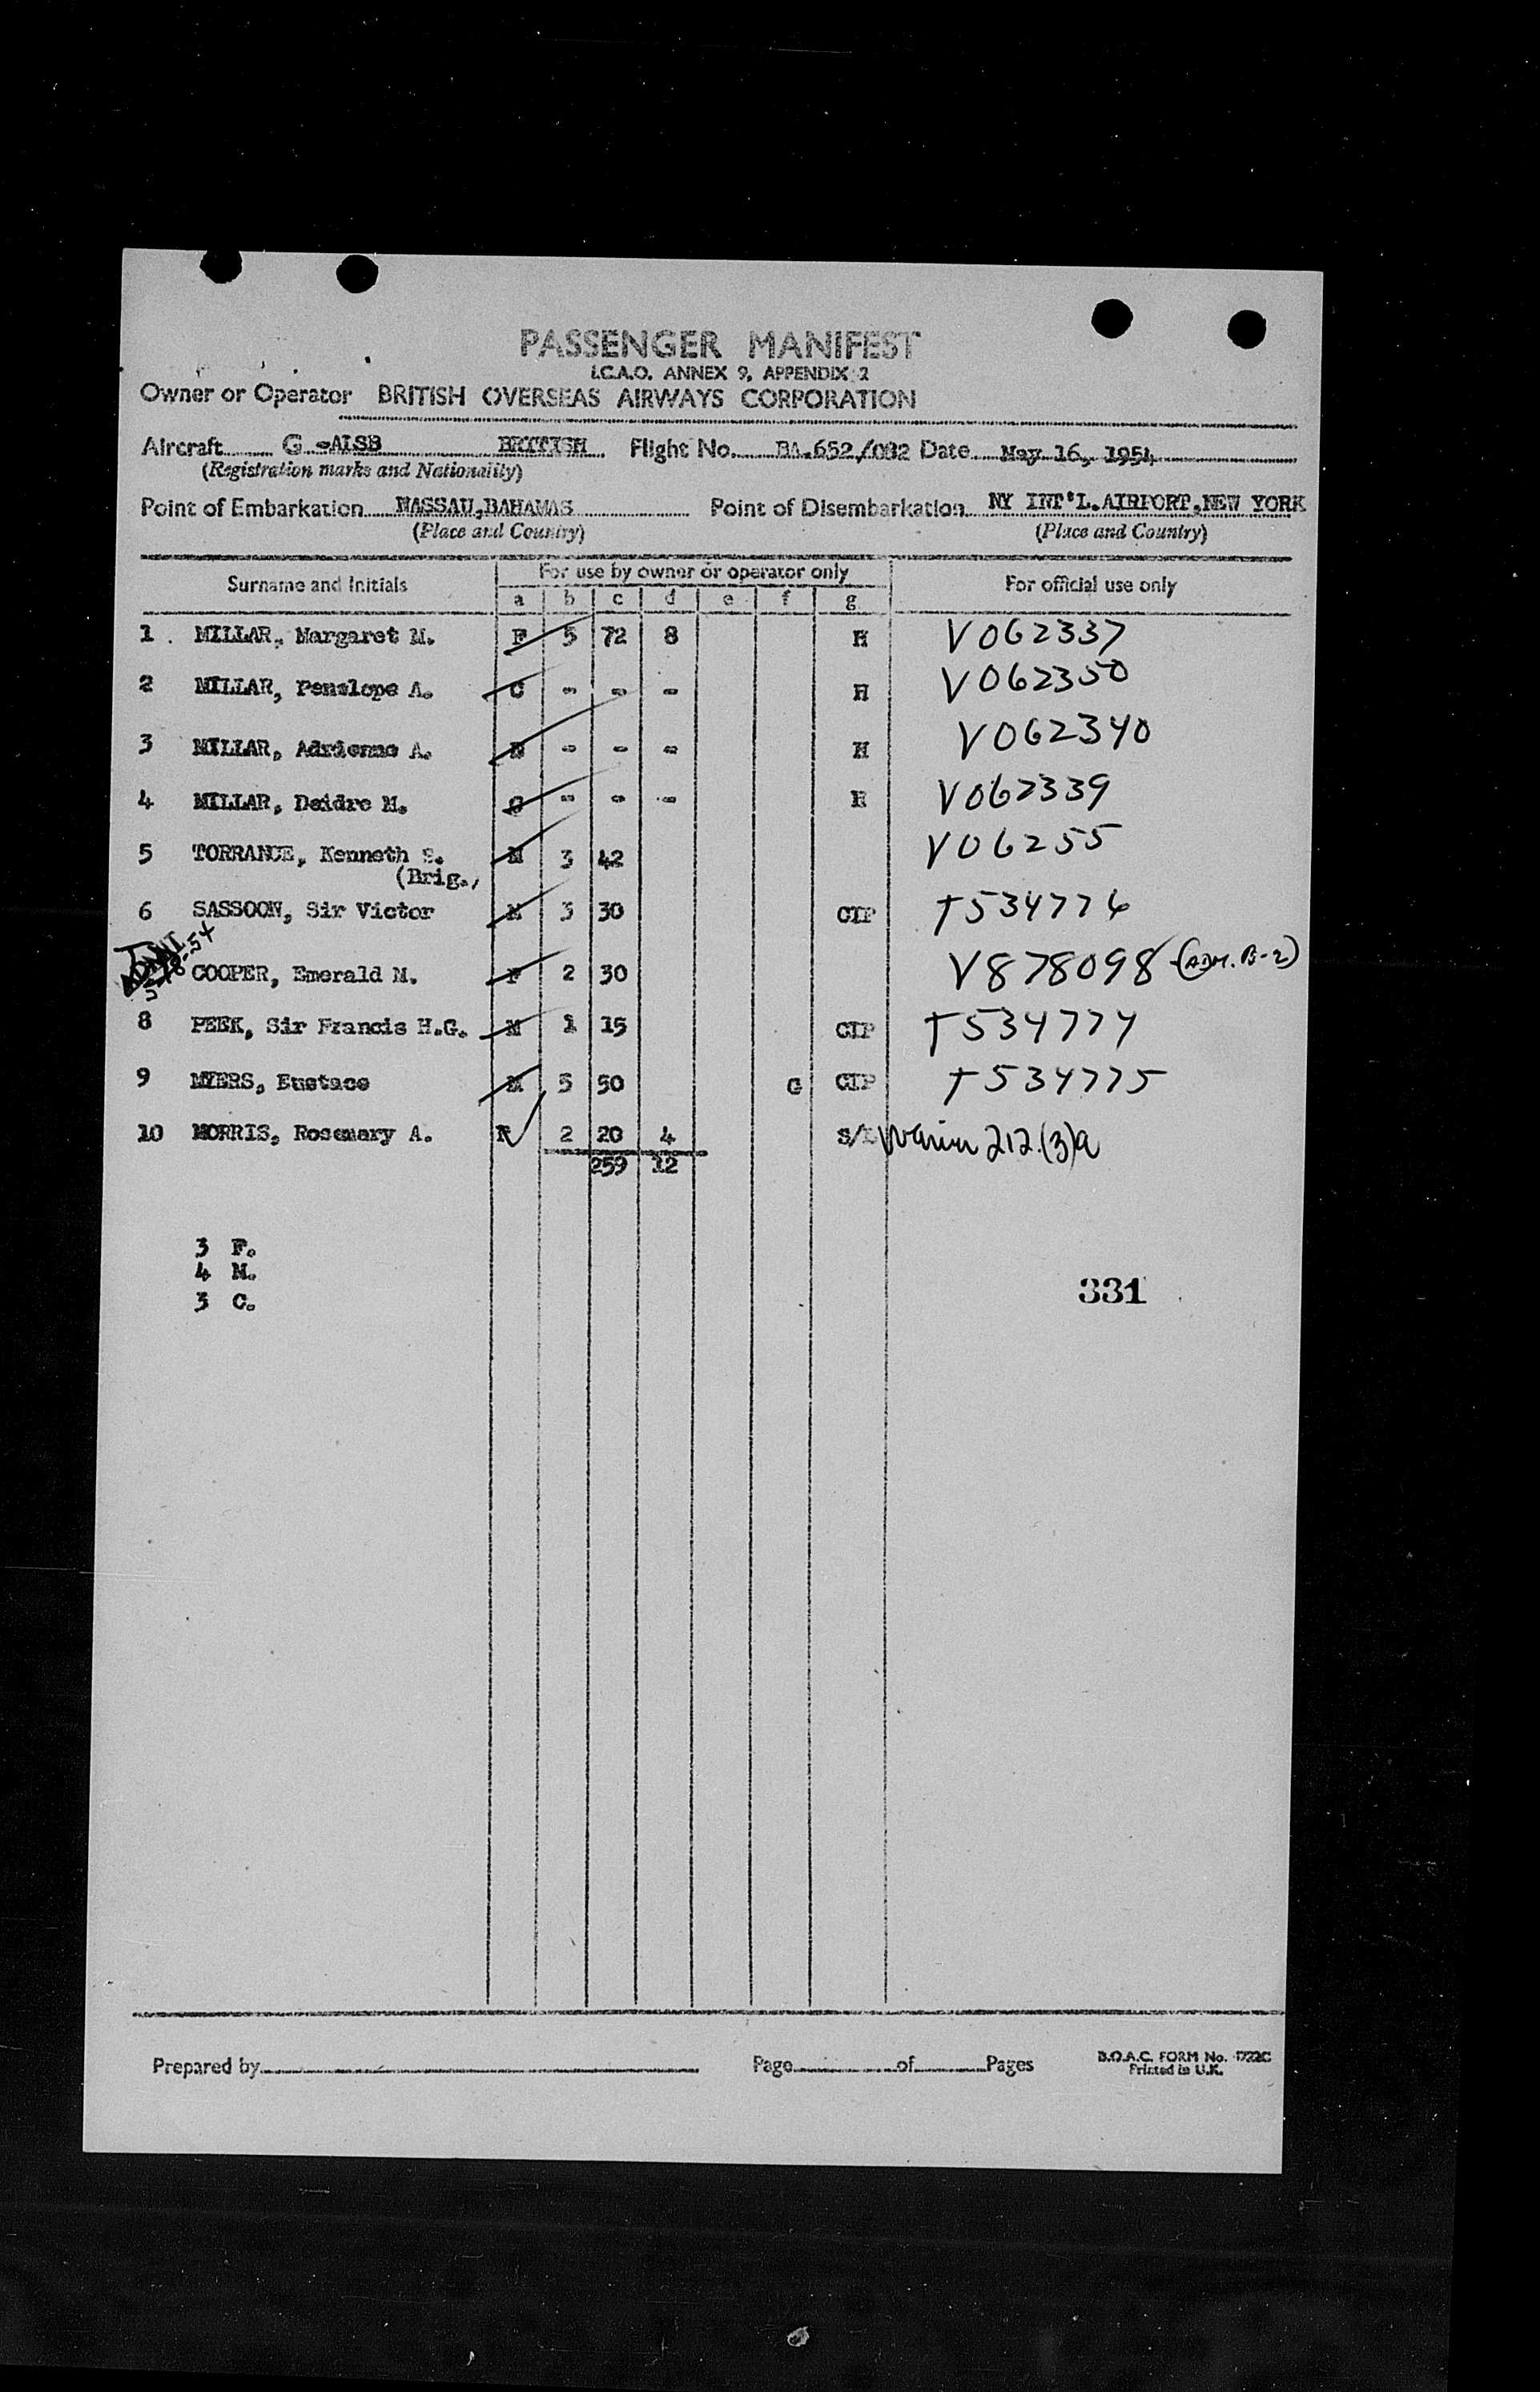 PASSENGER MANIFEST
I.C.A.O. ANNEX 9, APPENDIX 2
Owner or Operator BRITISH OVERSEAS AIRWAYS CORPORATION
Aircraft G -ALSB BRITISH Flight No. BA.652/082 Date May 16, 1954
(Registration marks and Nationality)
Point of Embarkation NASSAU,BAHAMAS Point of Disembarkation NY INT'L.AIRPORT,NEW YORK
(Place and Country) (Place and Country)
Surname and Initials For use by owner or operator only For official use only
a b c d e f g
1 MILLAR, Margaret M. F 5 72 8 H V062337
2 MILLAR, Penelope A. C - - - H V062350
3 MILLAR, Adrienne A. - - - H V062340
4 MILLAR, Deidre M. C - - - H V062339
5 TORRANCE, Kenneth S. M 3 42 V06255
(Brig.)
6 SASSOON, Sir Victor M 3 30 CIP T534776
COOPER, Emerald M. F 2 30 V878098 (ADM. B-2)
8 PEEK, Sir Francis H.G. M 1 15 CIP T534774
9 MYERS, Eustace M 5 50 G CIP T534775
10 MORRIS, Rosemary A. F 2 20 4 S/L Waiver 212.(3)a
259 12
3 F.
4 M.
3 C.
331
Prepared by Page of Pages B.O.A.C. FORM No. 1722C
Printed in U.K.